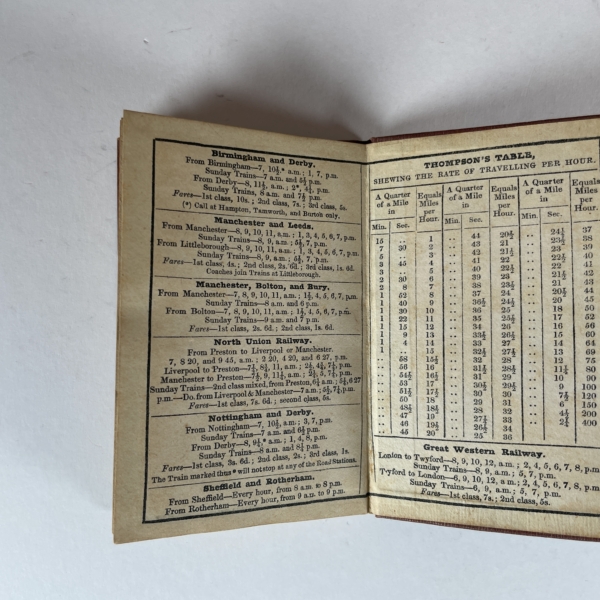 Birmingham and Derby.
From Birmingham—7, 10½,* a.m.; 1, 7, p.m.
Sunday Trains—7 a.m. and 5½ p.m.
From Derby—8, 11½, a.m.; 2*, p.m.
Sunday Trains, 8 a.m. and 7½ p.m.
Fares—1st class, 10s.; 2nd class, 7s.; 3rd class, 5s.
(*) Call at Hampton, Tamworth, and Burton only.
Manchester and Leeds.
From Manchester—8, 9, 10, 11, a.m.; 1, 3, 4, 5, 6, 7, p.m.
Sunday Trains—8, 9 a.m.; 5½, 7, p.m.
From Littleborough—8, 9, 10, 11, a.m.; 1, 3, 4, 5, 6, 7, p.m.
Sunday Trains—8, 9 a.m.; 5½, 7, p.m.
Fares—1st class, 4s.; 2nd class, 2s. 6d.; 3rd class, 1s. 4d.
Coaches join Trains at Littleborough.
Manchester, Bolton, and Bury.
From Manchester—7, 8, 9, 10, 11, a.m.; 1½, 4, 5, 6, 7, p.m.
Sunday Trains—8 a.m. and 6 p.m.
From Bolton—7, 8, 9, 10, 11, a.m.; 1½, 4, 5, 6, 7, p.m.
Sunday Trains—9 a.m. and 7 p.m.
Fares—1st class, 2s. 6d.; 2nd class, 1s. 6d.
North Union Railway.
From Preston to Liverpool or Manchester.
7, 8 20, and 9 45, a.m.; 2 20, 4 20, and 6 27, p.m.
Liverpool to Preston—7½, 8¾, 11, a.m.; 2½, 4¾, 7½, p.m.
Manchester to Preston—7½, 9, 11½, a.m.; 2½, 5, 7½, p.m.
Sunday Trains—2nd class mixed, from Preston, 6½ a.m.; 5½, 6 27
p.m.—Do. from Liverpool & Manchester—7 a.m.; 5½, 7½, p.m.
Fares—1st class, 7s. 6d.; second class, 5s.
Nottingham and Derby.
From Nottingham—7, 10½, a.m.; 3, 7, p.m.
Sunday Trains—7 a.m. and 6½ p.m.
From Derby—8, 9½,* a.m.; 1, 4, 8, p.m.
Sunday Trains—8 a.m. and 8½ p.m.
Fares—1st class, 3s. 6d.; 2nd class, 2s.; 3rd class, 1s.
The Train marked thus * will not stop at any of the Road Stations.
Sheffield and Rotherham.
From Sheffield—Every hour, from 8 a.m. to 8 p.m.
From Rotherham—Every hour, from 9 a.m. to 9 p.m.
THOMPSON'S TABLE,
SHEWING THE RATE OF TRAVELLING PER HOUR.
A Quarter of a Mile in Equals Miles per Hour. A Quarter of a Mile in Equals Miles per Hour. A Quarter of a Mile in Equals Miles per Hour.
Min. Sec. Min. Sec. Min. Sec.
15 .. 1 .. 44 20½ .. 24½ 37
7 30 2 .. 43 21 .. 23½ 38
5 .. 3 .. 42 21½ .. 23 39
3 45 4 .. 41 22 .. 22½ 40
3 .. 5 .. 40 22½ .. 22 41
2 30 6 .. 39 23 .. 21½ 42
2 8 7 .. 38 23½ .. 21 43
1 52 8 .. 37 24 .. 20½ 44
1 40 9 .. 36½ 24½ .. 20 45
1 30 10 .. 36 25 .. 18 50
1 22 11 .. 35 25½ .. 17 52
1 15 12 .. 34 26 .. 16 56
1 9 13 .. 33½ 26½ .. 15 60
1 4 14 .. 33 27 .. 14 64
1 .. 15 .. 32½ 27½ .. 13 69
.. 58 15½ .. 32 28 .. 12 75
.. 56 16 .. 31½ 28½ .. 11¼ 80
.. 54½ 16½ .. 31 29 .. 10 90
.. 53 17 .. 30½ 29½ .. 9 100
.. 51½ 17½ .. 30 30 .. 7½ 120
.. 50 18 .. 29 31 .. 6 150
.. 48½ 18½ .. 28 32 .. 4½ 200
.. 47 19 .. 27 33 .. 2¼ 400
.. 46 19½ .. 26½ 34
.. 45 20 .. 25 36
Great Western Railway.
London to Twyford—8, 9, 10, 12, a.m.; 2, 4, 5, 6, 7, 8, p.m.
Sunday Trains—8, 9, a.m.; 5, 7, p.m.
Twyford to London—6, 9, 10, 12, a.m.; 2, 4, 5, 6, 7, 8, p.m.
Sunday Trains—6, 9, a.m.; 5, 7, p.m.
Fares—1st class, 7s.; 2nd class, 5s.